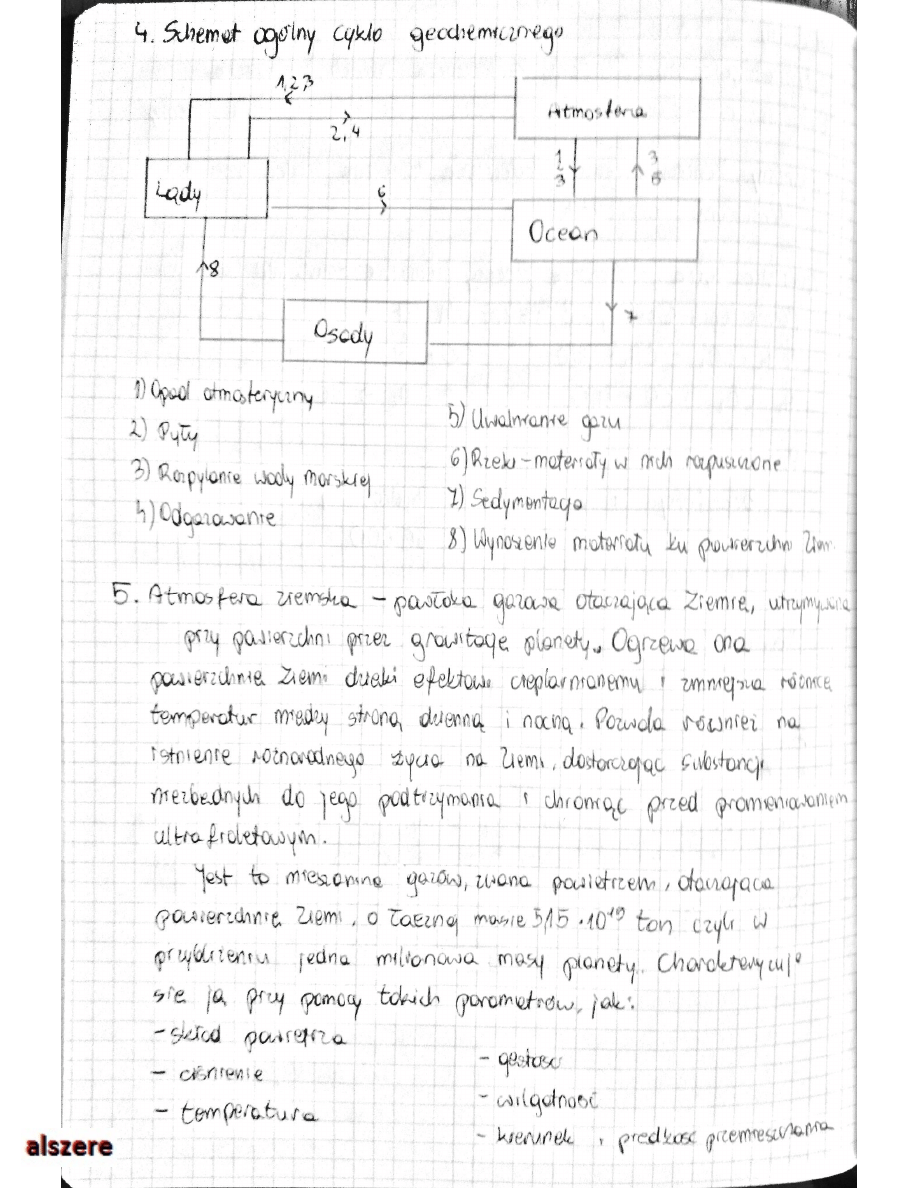 4. Schemat ogólny cyklo geochemicznego
1,2,3
Atmosfera
2,4
1
2
3
3
5
Lądy
6
Ocean
8
7
Osady
1) Opad atmosferyczny
2) Pyły
3) Rozpylanie wody morskiej
4) Odgazowanie
5) Uwalnianie gazu
6) Rzeki - materiały w nich rozpuszczone
7) Sedymentacja
8) Wynoszenie materiału ku powierzchni Ziemi
5. Atmosfera ziemska - powłoka gazowa otaczająca Ziemię, utrzymywana
przy powierzchni przez grawitację planety. Ogrzewa ona
powierzchnię Ziemi dzięki efektowi cieplarnianemu i zmniejsza różnicę
temperatur między stroną dzienną i nocną. Pozwala również na
istnienie różnorodnego życia na Ziemi, dostarczając substancji
niezbędnych do jego podtrzymania i chroniąc przed promieniowaniem
ultrafioletowym.
Jest to mieszanina gazów, zwana powietrzem, otaczająca
powierzchnię Ziemi, o łącznej masie 5,15 · 10¹⁹ ton czyli w
przybliżeniu jedna milionowa masy planety. Charakteryzuje
się ją przy pomocy takich parametrów, jak:
- skład powietrza
- ciśnienie
- temperatura
- gęstość
- wilgotność
- kierunek i prędkość przemieszczania
alszere